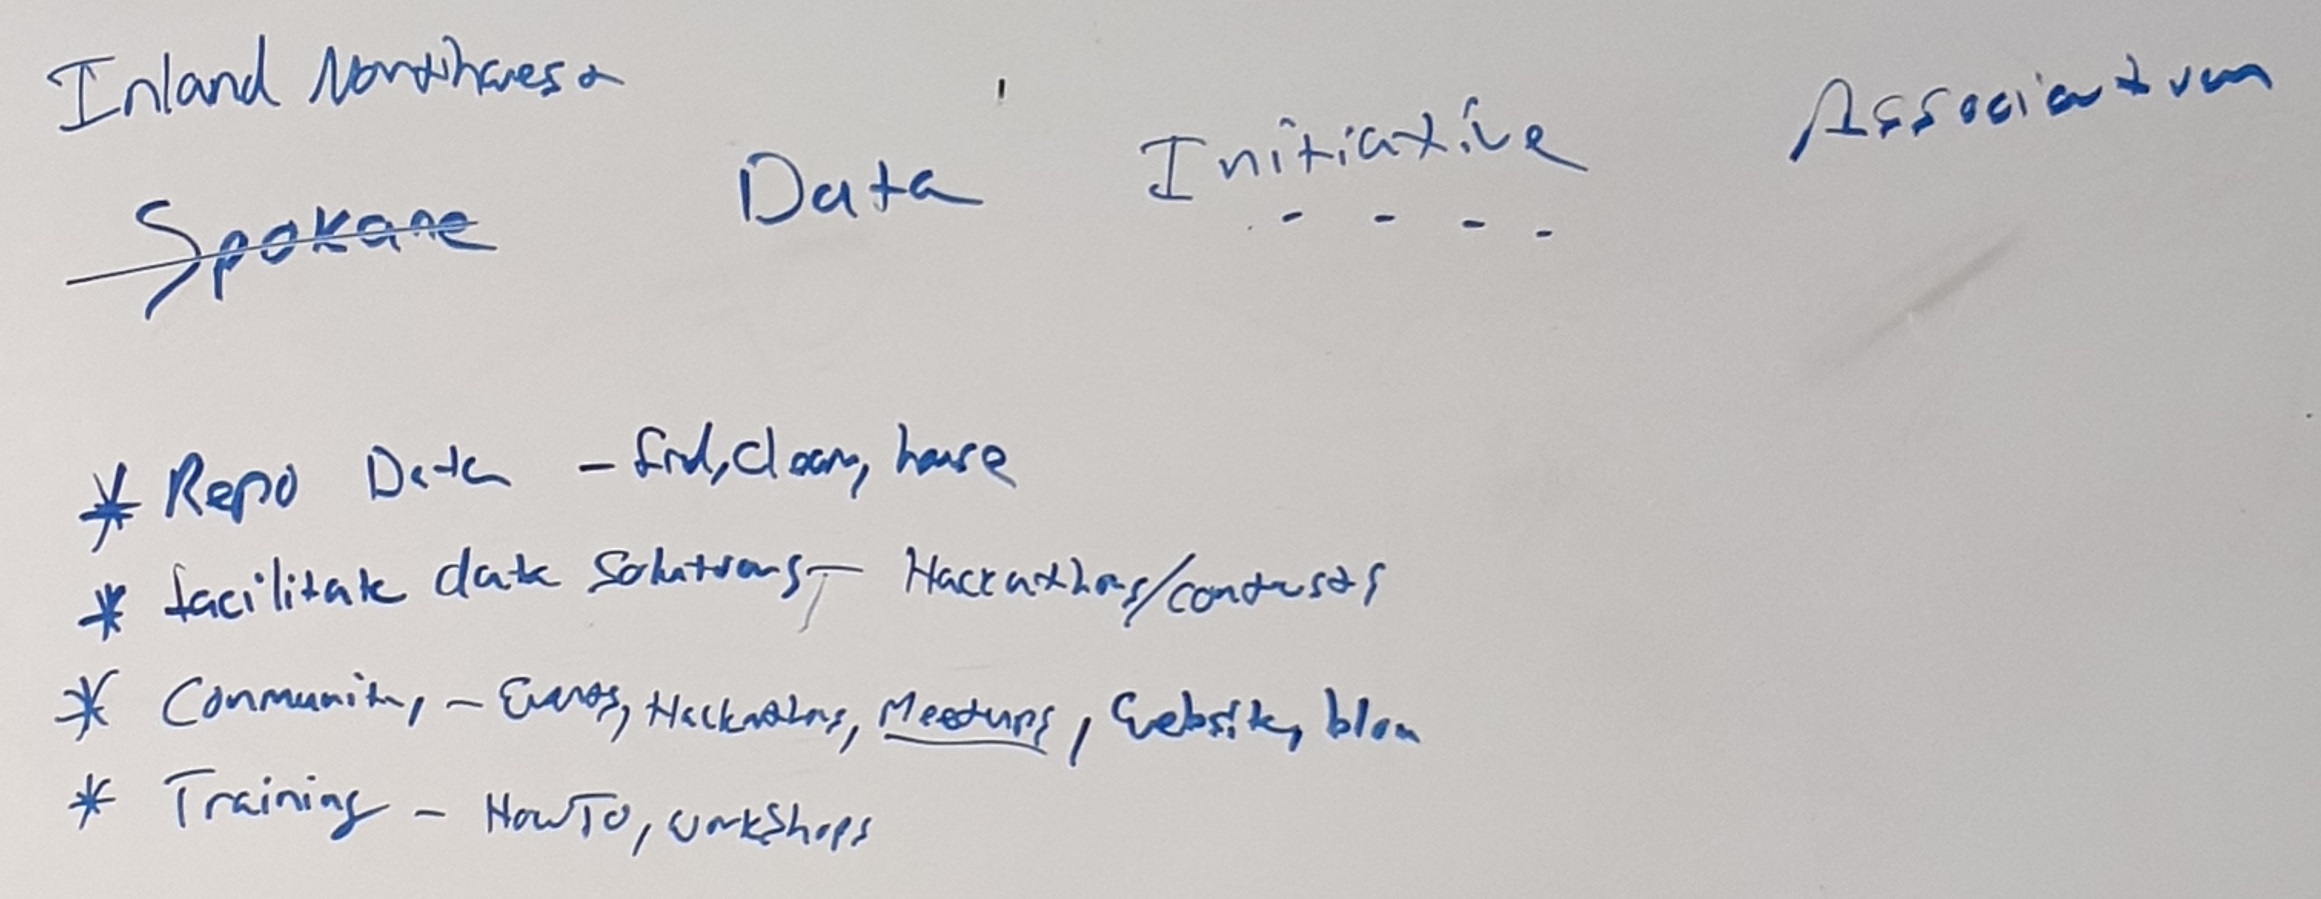 Inland Northwest
Spokane Data Initiative Association
* Repo Data - find, clean, house
* facilitate data solutions - Hackathons/contests
* Community - Events, Hackathons, Meetups, Website, blog
* Training - HowTo, workshops